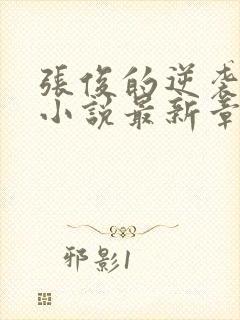 張俊的逆袭
小説最新章
邪影1